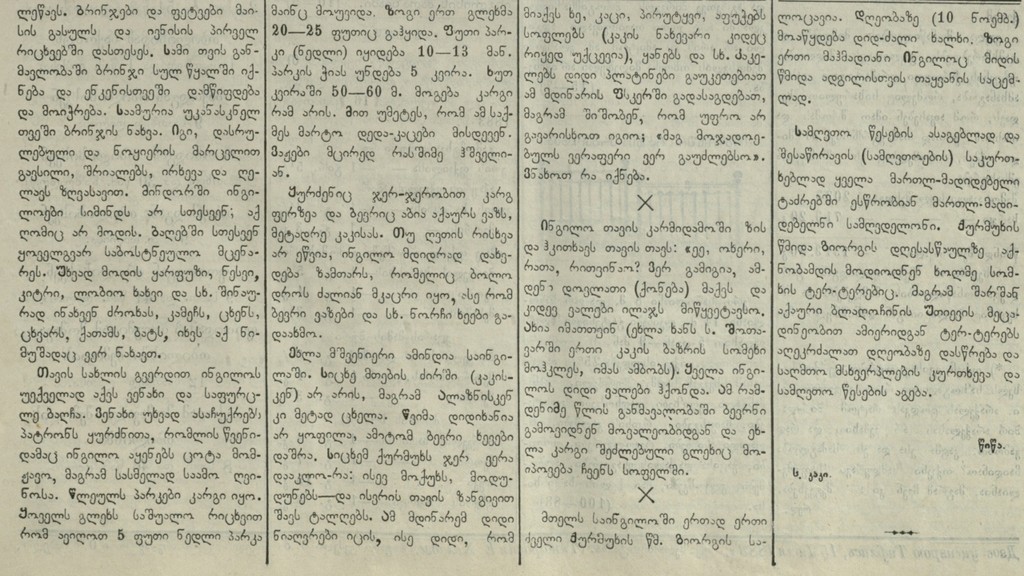 ლეწავს. ბრინჯები და ფეტვები მაი-
სის გასულს და იენისის პირველ
რიცხვებში დასთესეს. სამი თვის გან-
მავლობაში ბრინჯი სულ წყალში იქ-
ნება და ენკენისთვეში დამწიფდება
და მოიჭრება. საამურია უკანასკნელ
თვეში ბრინჯის ნახვა. იგი, დასრუ-
ლებული და ნოყიერის მარცვლით
გავსილი, შრიალებს, ირხევა და ღე-
ლავს ზღვასავით. მინდორში ინგი-
ლოები სიმინდს არ სთესვენ; აქ
ღომიც არ მოდის. ბაღებში სთესვენ
ყოველგვარ საბოსტნეულო მცენა-
რეს. უხვად მოდის ყარფუზი, ნესვი,
კიტრი, ლობიო ხახვი და სხ. შინაუ-
რად ინახვენ ძროხას, კამეჩს, ცხენს,
ცხვარს, ქათამს, ბატს, იხვს აქ ნი-
მუშადაც ვერ ნახავთ.
თავის სახლის გვერდით ინგილოს
უეჭველად აქვს ვენახი და საფურც-
ლე ბაღჩა. ვენახი უხვად ასაჩუქრებს
პატრონს ყურძნითა, რომლის წვენი-
დამაც ინგილო აყენებს ცოტა მომ-
ჟავო, მაგრამ სასმელად საამო ღვი-
ნოსა. წლეულს პარკები კარგი იყო.
ყოველს გლეხს საშუალო რიცხვით
რომ ავიღოთ 5 ფუთი ნედლი პარკა
მაინც მოუვიდა. ზოგი ერთ გლეხმა
20—25 ფუთიც გაჰყიდა. ფუთი პარ-
კი (ნედლი) იყიდება 10—13 მან.
პარკის ჭიას უნდება 5 კვირა. ხუთ
კვირაში 50—60 მ. მოგება კარგი
რამ არის. მით უმეტეს, რომ ამ საქ-
მეს მარტო დედა-კაცები მისდევენ.
ვაჟები მცირედ რასმიმე ჰშველი-
ან.
ყურძენიც ჯერ-ჯერობით კარგ
ფერზეა და ბევრიც აბია აქაურს ვაზს,
მეტადრე კაკისას. თუ ღვთის რისხვა
არ ეწვია, ინგილო მდიდრად დახვ-
დება ზამთარს, რომელიც ბოლო
დროს ძალიან მკაცრი იყო, ასე რომ
ბევრი ვაზები და სხ. ნორჩი ხეები გა-
დაახმო.
ეხლა მშვენიერი ამინდია საინგი-
ლოში. სიცხე მთების ძირში (კაკის-
კენ) არ არის, მაგრამ ალაზნისკენ
კი მეტად ცხელა. წვიმა დიდიხანია
არ ყოფილა, ამიტომ ბევრი ხევები
დაშრა. სიცხემ ქურმუხს ჯერ ვერა
დააკლო-რა: ისევ მოქუხს, მოდუ-
დუნებს—და ისვრის თავის ზანგივით
შავს ტალღებს. ამ მდინარემ დიდი
ნიაღვრები იცის, ისე დიდი, რომ
მიაქვს ხე, კაცი, პირუტყვი, აფუჭებს
სოფლებს (კაკის ნახევარი კიდეც
რიყედ უქცევია), ყანებს და სხ. კაკე-
ლებს დიდი პლატინები გაუკეთებიათ
ამ მდინარის ფსკერში გადასაგდებათ,
მაგრამ შიშობენ, რომ უფრო არ
გავარისხოთ იგიო; «მაგ მოჯადოე-
ბულს ვერაფერი ვერ გაუძლებსო».
ვნახოთ რა იქნება.
×
ინგილო თავის კარმიდამოში ზის
და ჰკითხავს თავის თავს: «ეე, ოხერი,
რათა, რითვინაო? ვერ გამიგია, ამ-
დენი დოვლათი (ქონება) მაქვს და
კიდევ ვალები ილაჯს მიწყვეტავსო.
ახია იმათთვინ (ეხლა ხანს ს. მოთა-
ვარში ერთი კაკის ბაზრის სომეხი
მოჰკლეს, იმას ამბობს). ყველა ინგი-
ლოს დიდი ვალები ჰქონდა. ამ რამ-
დენიმე წლის განმავალობაში ბევრნი
გამოვიდნენ მოვალეობიდგან და ეხ-
ლა კარგი შეძლებული გლეხიც მო-
იპოვება ჩვენს სოფელში.
×
მთელს საინგილოში ერთად ერთი
ძველი ქურმუხის წმ. გიორგის სა-
ლოცავია. დღეობაზე (10 ნოემბ.)
მოაწყდება დიდ-ძალი ხალხი. ზოგი
ერთი მაჰმადიანი ინგილოც მიდის
წმიდა ადგილისთვის თაყვანის საცემ-
ლად.
სამღვთო წესების ასაგებლად და
შესაწირავის (სამღვთოების) საკურთ-
ხებლად ყველა მართლ-მადიდებელი
ტაძრებში ესწრობიან მართლ-მადი-
დებელნი სამღვდელონი. ქურმუხის
წმიდა გიორგის დღესასწაულზე აქ-
ნობამდის მოდიოდნენ ხოლმე სომ-
ხის ტერ-ტერებიც. მაგრამ შარშან
აქაური ბლაღოჩინის უთიევის მეცა-
დინეობით ამიერიდგან ტერ-ტერებს
აღეკრძალათ დღეობაზე დასწრება და
საღმთო მსხვერპლების კურთხევა და
სამღვთო წესების აგება.
წიწა.
ს. კაკი.